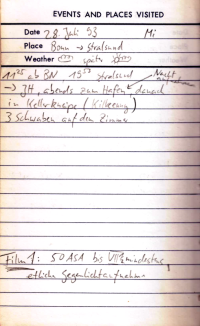 EVENTS AND PLACES VISITED
Date 28. Juli 93 Mi
Place Bonn → Stralsund
Weather später
11 25 ab BN, 19 57 Stralsund
→ JH, abends zum Hafen, danach Nachtaufnahmen
in Kellerkneipe (Kilkenny)
3 Schwaben auf dem Zimmer
Film 1: 50 ASA bis VIII mindestens,
etliche Gegenlichtaufnahmen